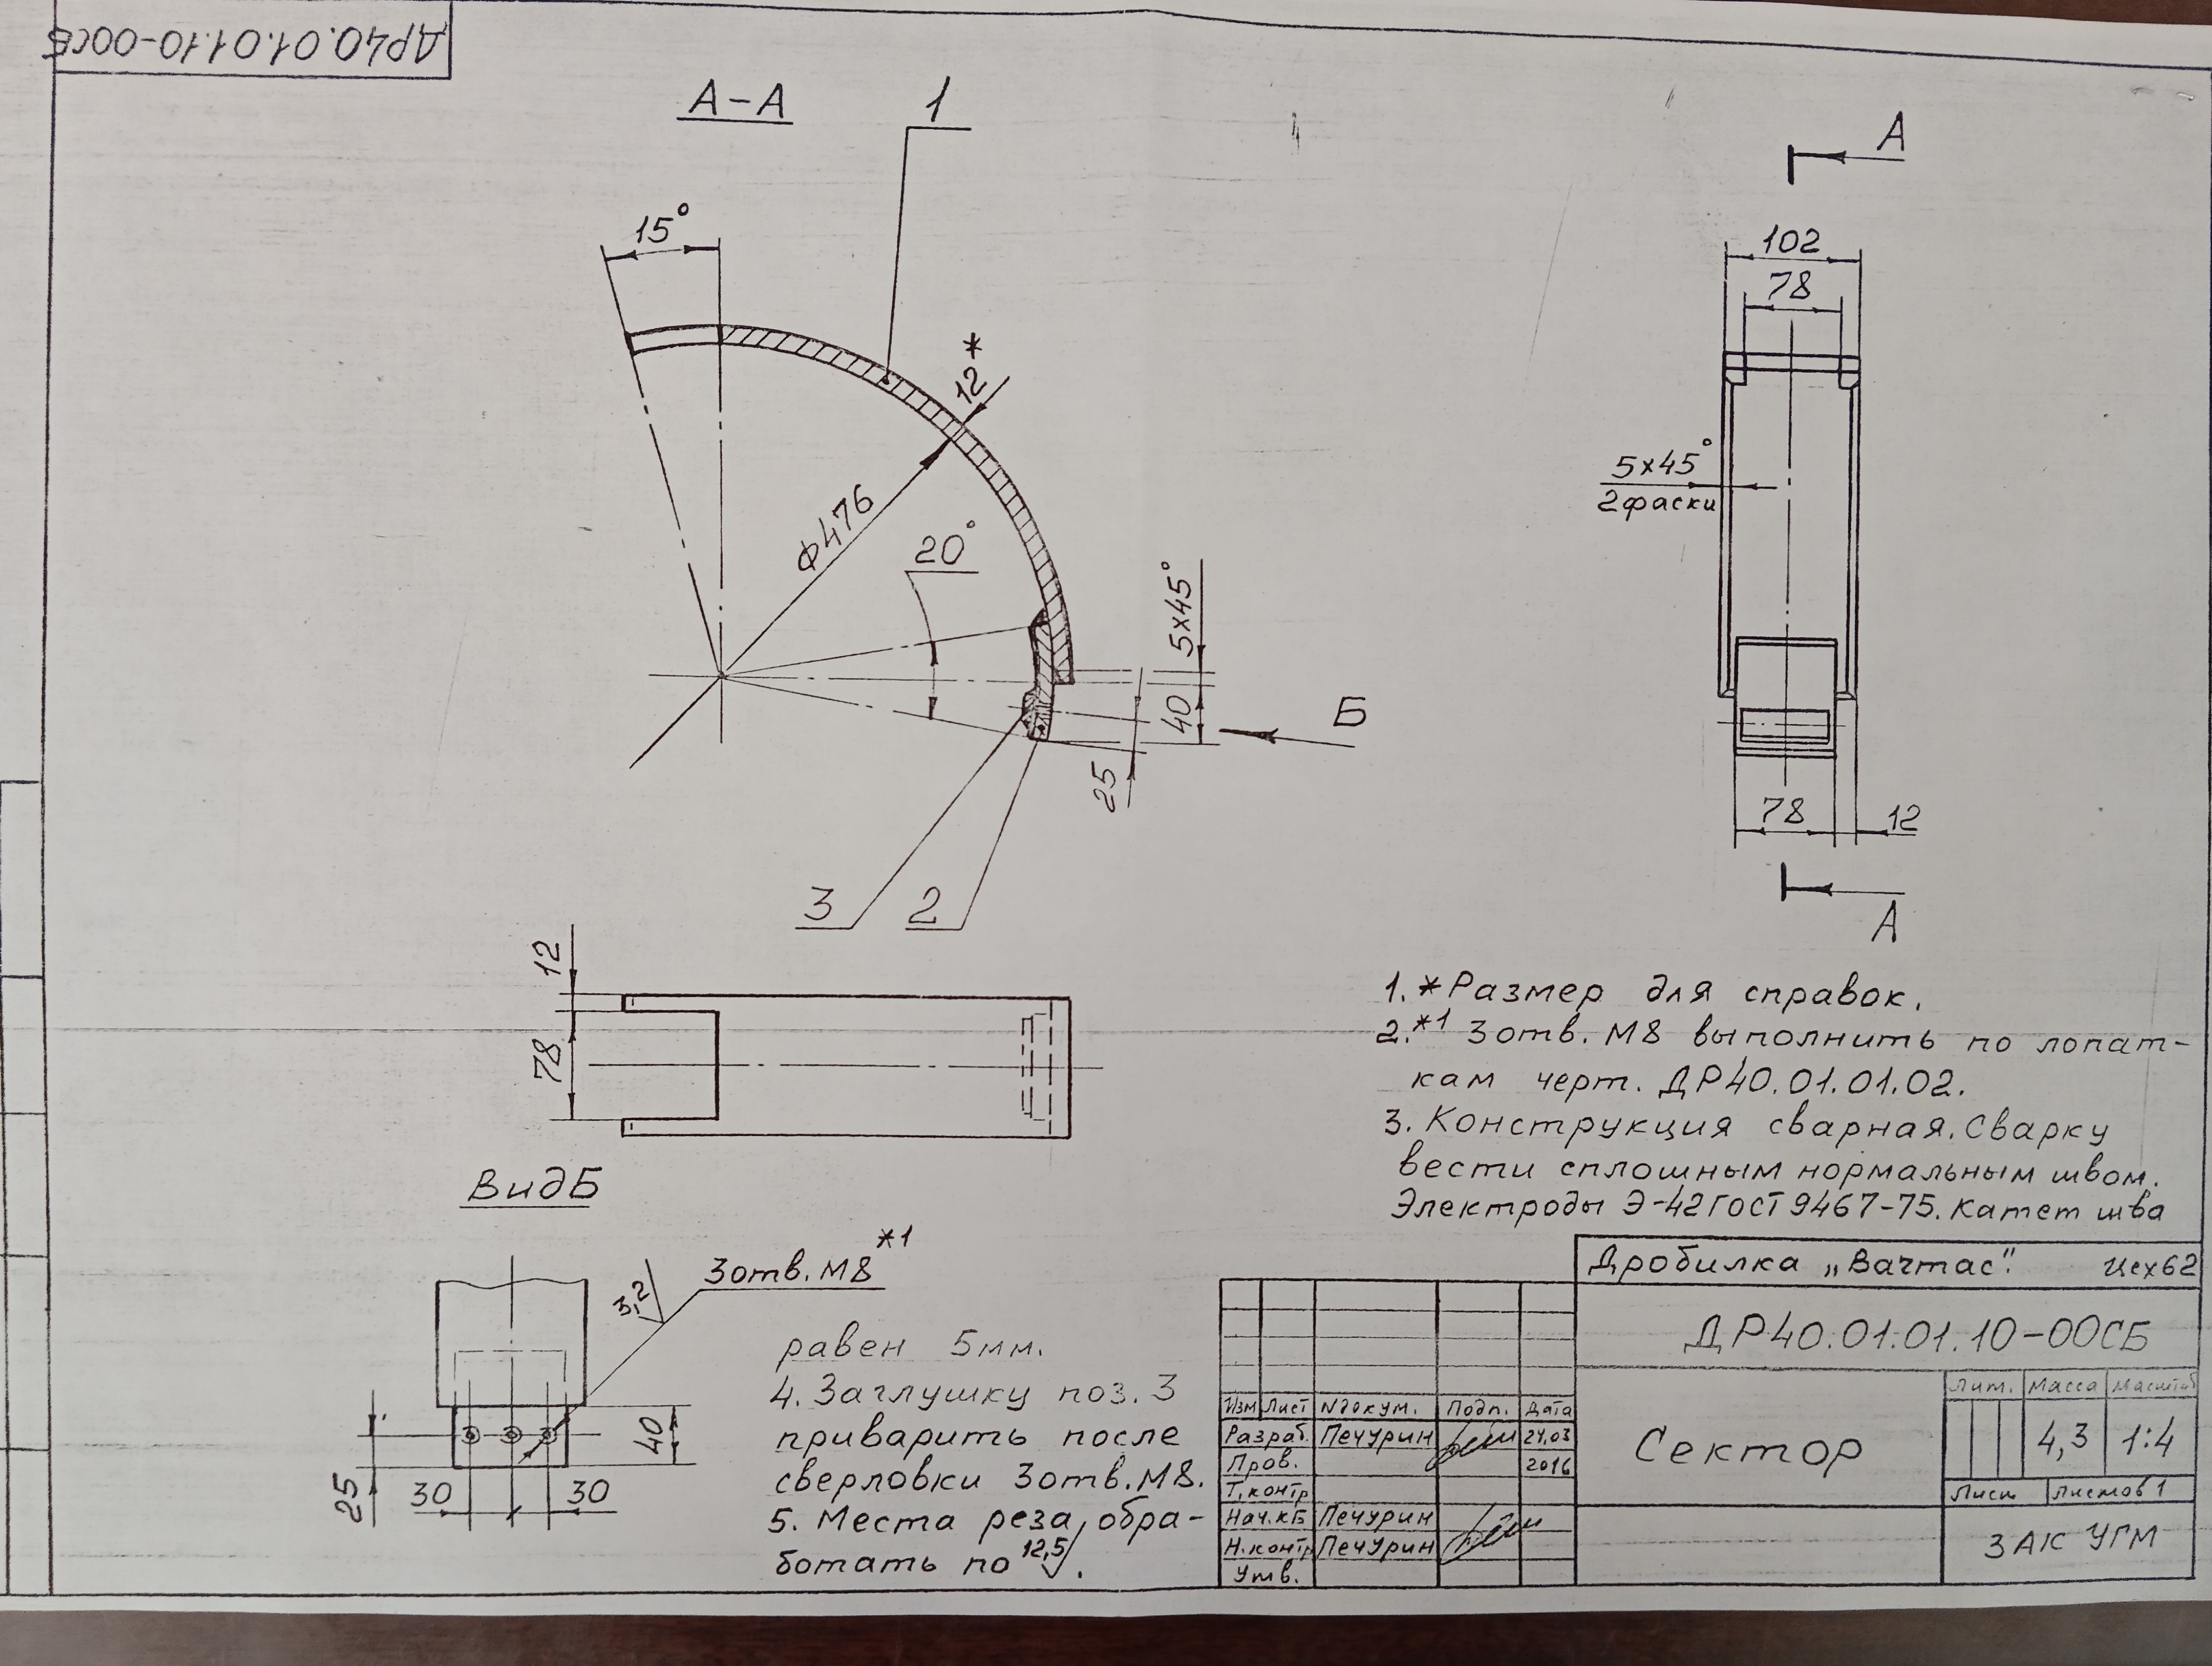 ДР40.01.01.10-00СБ
А-А
1
15°
12*
Ф476
20°
5х45°
40
25
Б
3
2
А
102
78
5х45°
2фаски
78
12
А
12
78
Вид Б
3отв.М8*1
3,2
40
25
30
30
1.*Размер для справок.
2.*1 3отв. М8 выполнить по лопат-
кам черт. ДР40.01.01.02.
3. Конструкция сварная. Сварку
вести сплошным нормальным швом.
Электроды Э-42 ГОСТ 9467-75. Катет шва
равен 5мм.
4. Заглушку поз. 3
приварить после
сверловки 3отв.М8.
5. Места реза обра-
ботать по 12,5.
Дробилка „Вачтас". Цех62
ДР40.01.01.10-00СБ
Лит. Масса Масштаб
4,3 1:4
Сектор
Лист Листов 1
ЗАК УГМ
Изм Лист N докум. Подп. Дата
Разраб. Печурин 24.03
Пров. 2016
Т.контр
Нач.КБ Печурин
Н.контр Печурин
Утв.